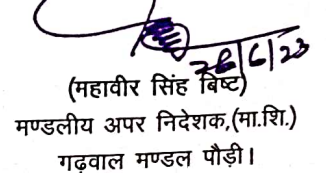 28/6/23
(महावीर सिंह बिष्ट)
मण्डलीय अपर निदेशक,(मा.शि.)
गढ़वाल मण्डल पौड़ी।